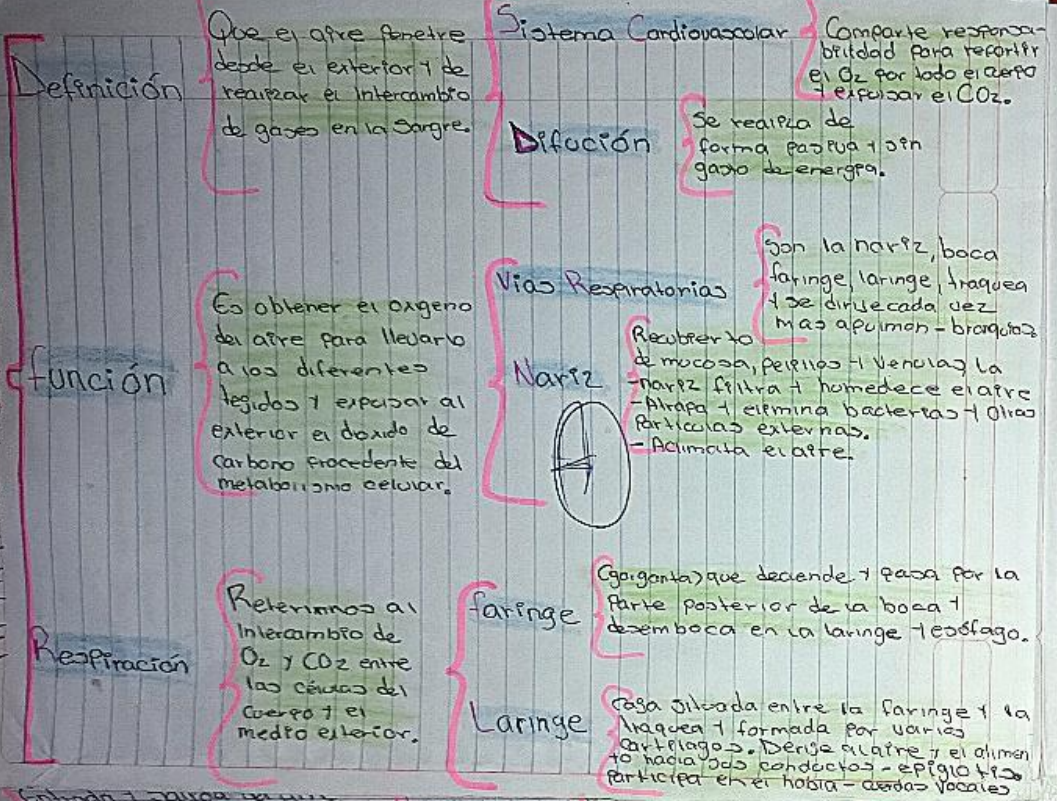 Definición
Que el aire penetre
desde el exterior y de
realizar el intercambio
de gases en la sangre.
Sistema Cardiovascolar
Comparte responsa-
bilidad para recortir
el O2 por todo el cuerpo
y expulsar el CO2.
Difución
Se realiza de
forma pasiva y sin
gasto de energía.
función
Es obtener el oxigeno
del aire para llevarlo
a los diferentes
tegidos y expulsar al
exterior el dioxido de
carbono procedente del
metabolismo celular.
Vias Respiratorias
Son la nariz, boca
faringe, laringe, traquea
y se dirige cada vez
mas a pulmon - branquias
Nariz
Recubierto
de mucosa, pelillos y venulas la
-nariz filtra y homedece el aire
-Atrapa y elimina bacterias y otras
Particulas externas.
-Aclimata el aire.
Respiración
Referirnos al
intercambio de
O2 y CO2 entre
las células del
cuerpo y el
medio exterior.
faringe
(garganta) que deciende y pasa por la
Parte posterior de la boca y
desemboca en la laringe y esófago.
Laringe
situada entre la faringe y la
traquea y formada por varios
cartilagos. Dirige al aire y el alimen
to hacia sus conductos - epiglotis
Participa en el habla - cuerdas vocales
Entrada y